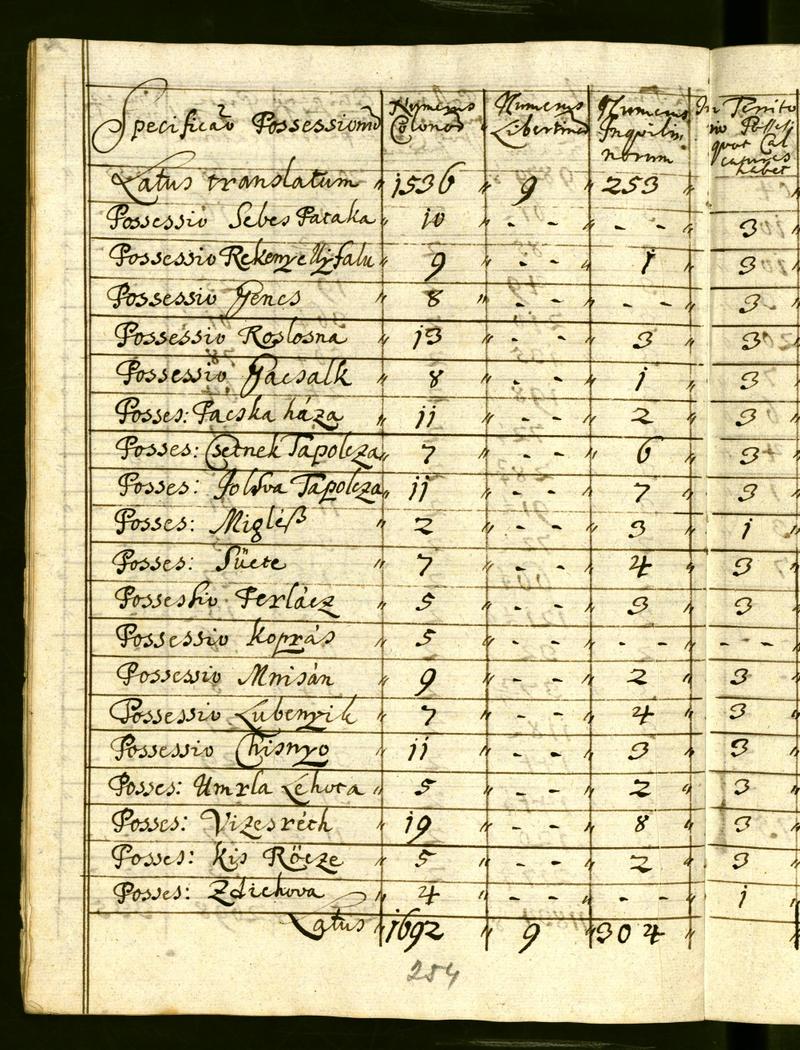 Specificaõ Possessionũ Numerus Colonorũ Numerus Libertinorũ Numerus Inquilinorum In Territorio Possessi quot Calcatures habet
Latus translatum " 1536 " 9 " 253 "
Possessio Sebes Pataka " 10 " - - " - - " 3
Possessio Rekenye Ujfalu " 9 " - - " 1 " 3
Possessio Gencs " 8 " - - " - - " 3
Possessio Roslosna " 13 " - - " 3 " 3
Possessio Gacsalk " 8 " - - " 1 " 3
Posses: Pacska háza " 11 " - - " 2 " 3
Posses: Csetnek Tapolcza " 7 " - - " 6 " 3
Posses: Jolsva Tapolcza " 11 " - - " 7 " 3
Posses: Migléß " 2 " - - " 3 " 1
Posses: Süete " 7 " - - " 4 " 3
Possessio Perlácz " 5 " - - " 3 " 3
Possessio Koprás " 5 " - - " - - " - -
Possessio Mnisán " 9 " - - " 2 " 3
Possessio Lubenyik " 7 " - - " 4 " 3
Possessio Chisnyo " 11 " - - " 3 " 3
Posses: Umrla Lehota " 5 " - - " 2 " 3
Posses: Vizesréth " 19 " - - " 8 " 3
Posses: Kis Röcze " 5 " - - " 2 " 3
Posses: Zdichova " 4 " - - " - - " 1
Latus " 1692 " 9 " 304 "
254